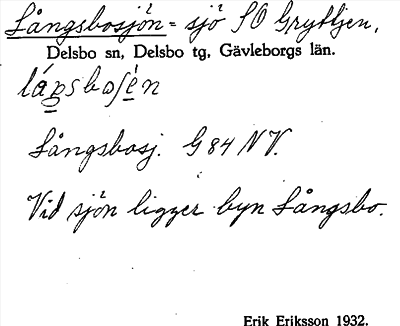 Långsbosjön = sjö SO Gryttjen,
Delsbo sn, Delsbo tg, Gävleborgs län.
Långsbosj. G 84 NV.
Vid sjön ligger byn Långsbo.
Erik Eriksson 1932.